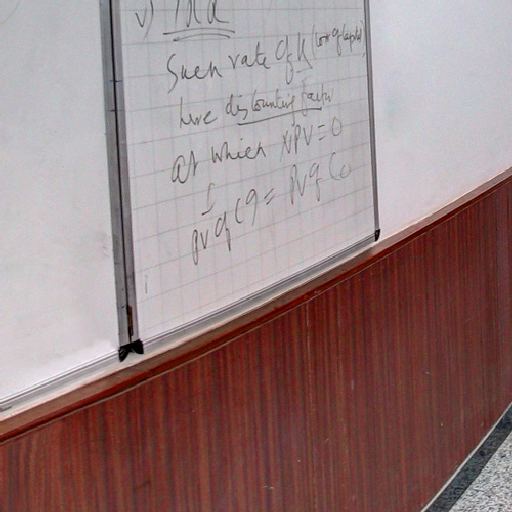 v) IRR
Such rate of K (cost of capital)
here discounting factor
at which NPV = 0
I
PV of CI = PV of CO